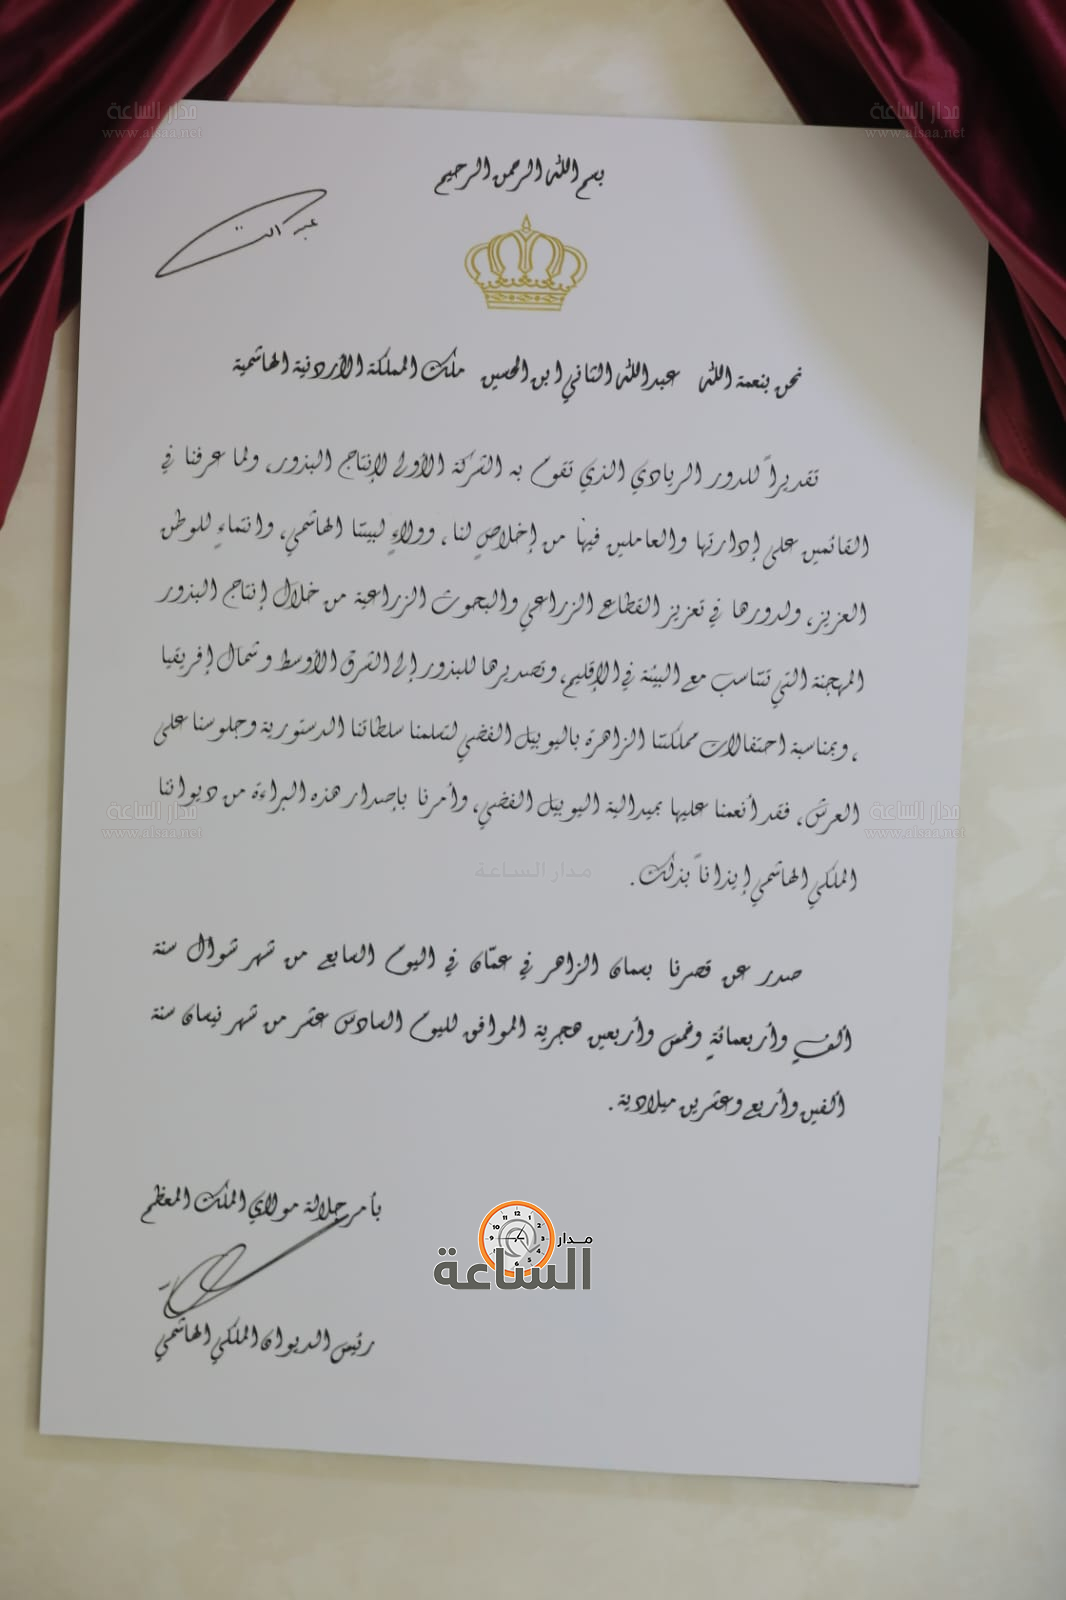 مدار الساعة
www.alsaa.net
مدار الساعة
www.alsaa.net
بسم الله الرحمن الرحيم
عبد الله
نحن بنعمة الله عبدالله الثاني ابن الحسين ملك المملكة الأردنية الهاشمية
تقديراً للدور الريادي الذي تقوم به الشركة الأولى لإنتاج البذور، ولما عرفنا في
القائمين على إدارتها والعاملين فيها من إخلاصٍ لنا، وولاءٍ لبيتنا الهاشمي، وانتماءٍ للوطن
العزيز، ولدورها في تعزيز القطاع الزراعي والبحوث الزراعية من خلال إنتاج البذور
المهجنة التي تتناسب مع البيئة في الإقليم، وتصديرها للبذور إلى الشرق الأوسط وشمال إفريقيا
، وبمناسبة احتفالات مملكتنا الزاهرة باليوبيل الفضي لتسلمنا سلطاتنا الدستورية وجلوسنا على
العرش، فقد أنعمنا عليها بميدالية اليوبيل الفضي، وأمرنا بإصدار هذه البراءة من ديواننا
الملكي الهاشمي إيذاناً بذلك.
مدار الساعة
www.alsaa.net
مدار الساعة
www.alsaa.net
مدار الساعة
صدر عن قصرنا بسمان الزاهر في عمّان في اليوم السابع من شهر شوال سنة
ألفٍ وأربعمائةٍ وخمس وأربعين هجرية الموافق لليوم السادس عشر من شهر نيسان سنة
ألفين وأربع وعشرين ميلادية.
بأمر جلالة مولاي الملك المعظم
رئيس الديوان الملكي الهاشمي
مدار
الساعة